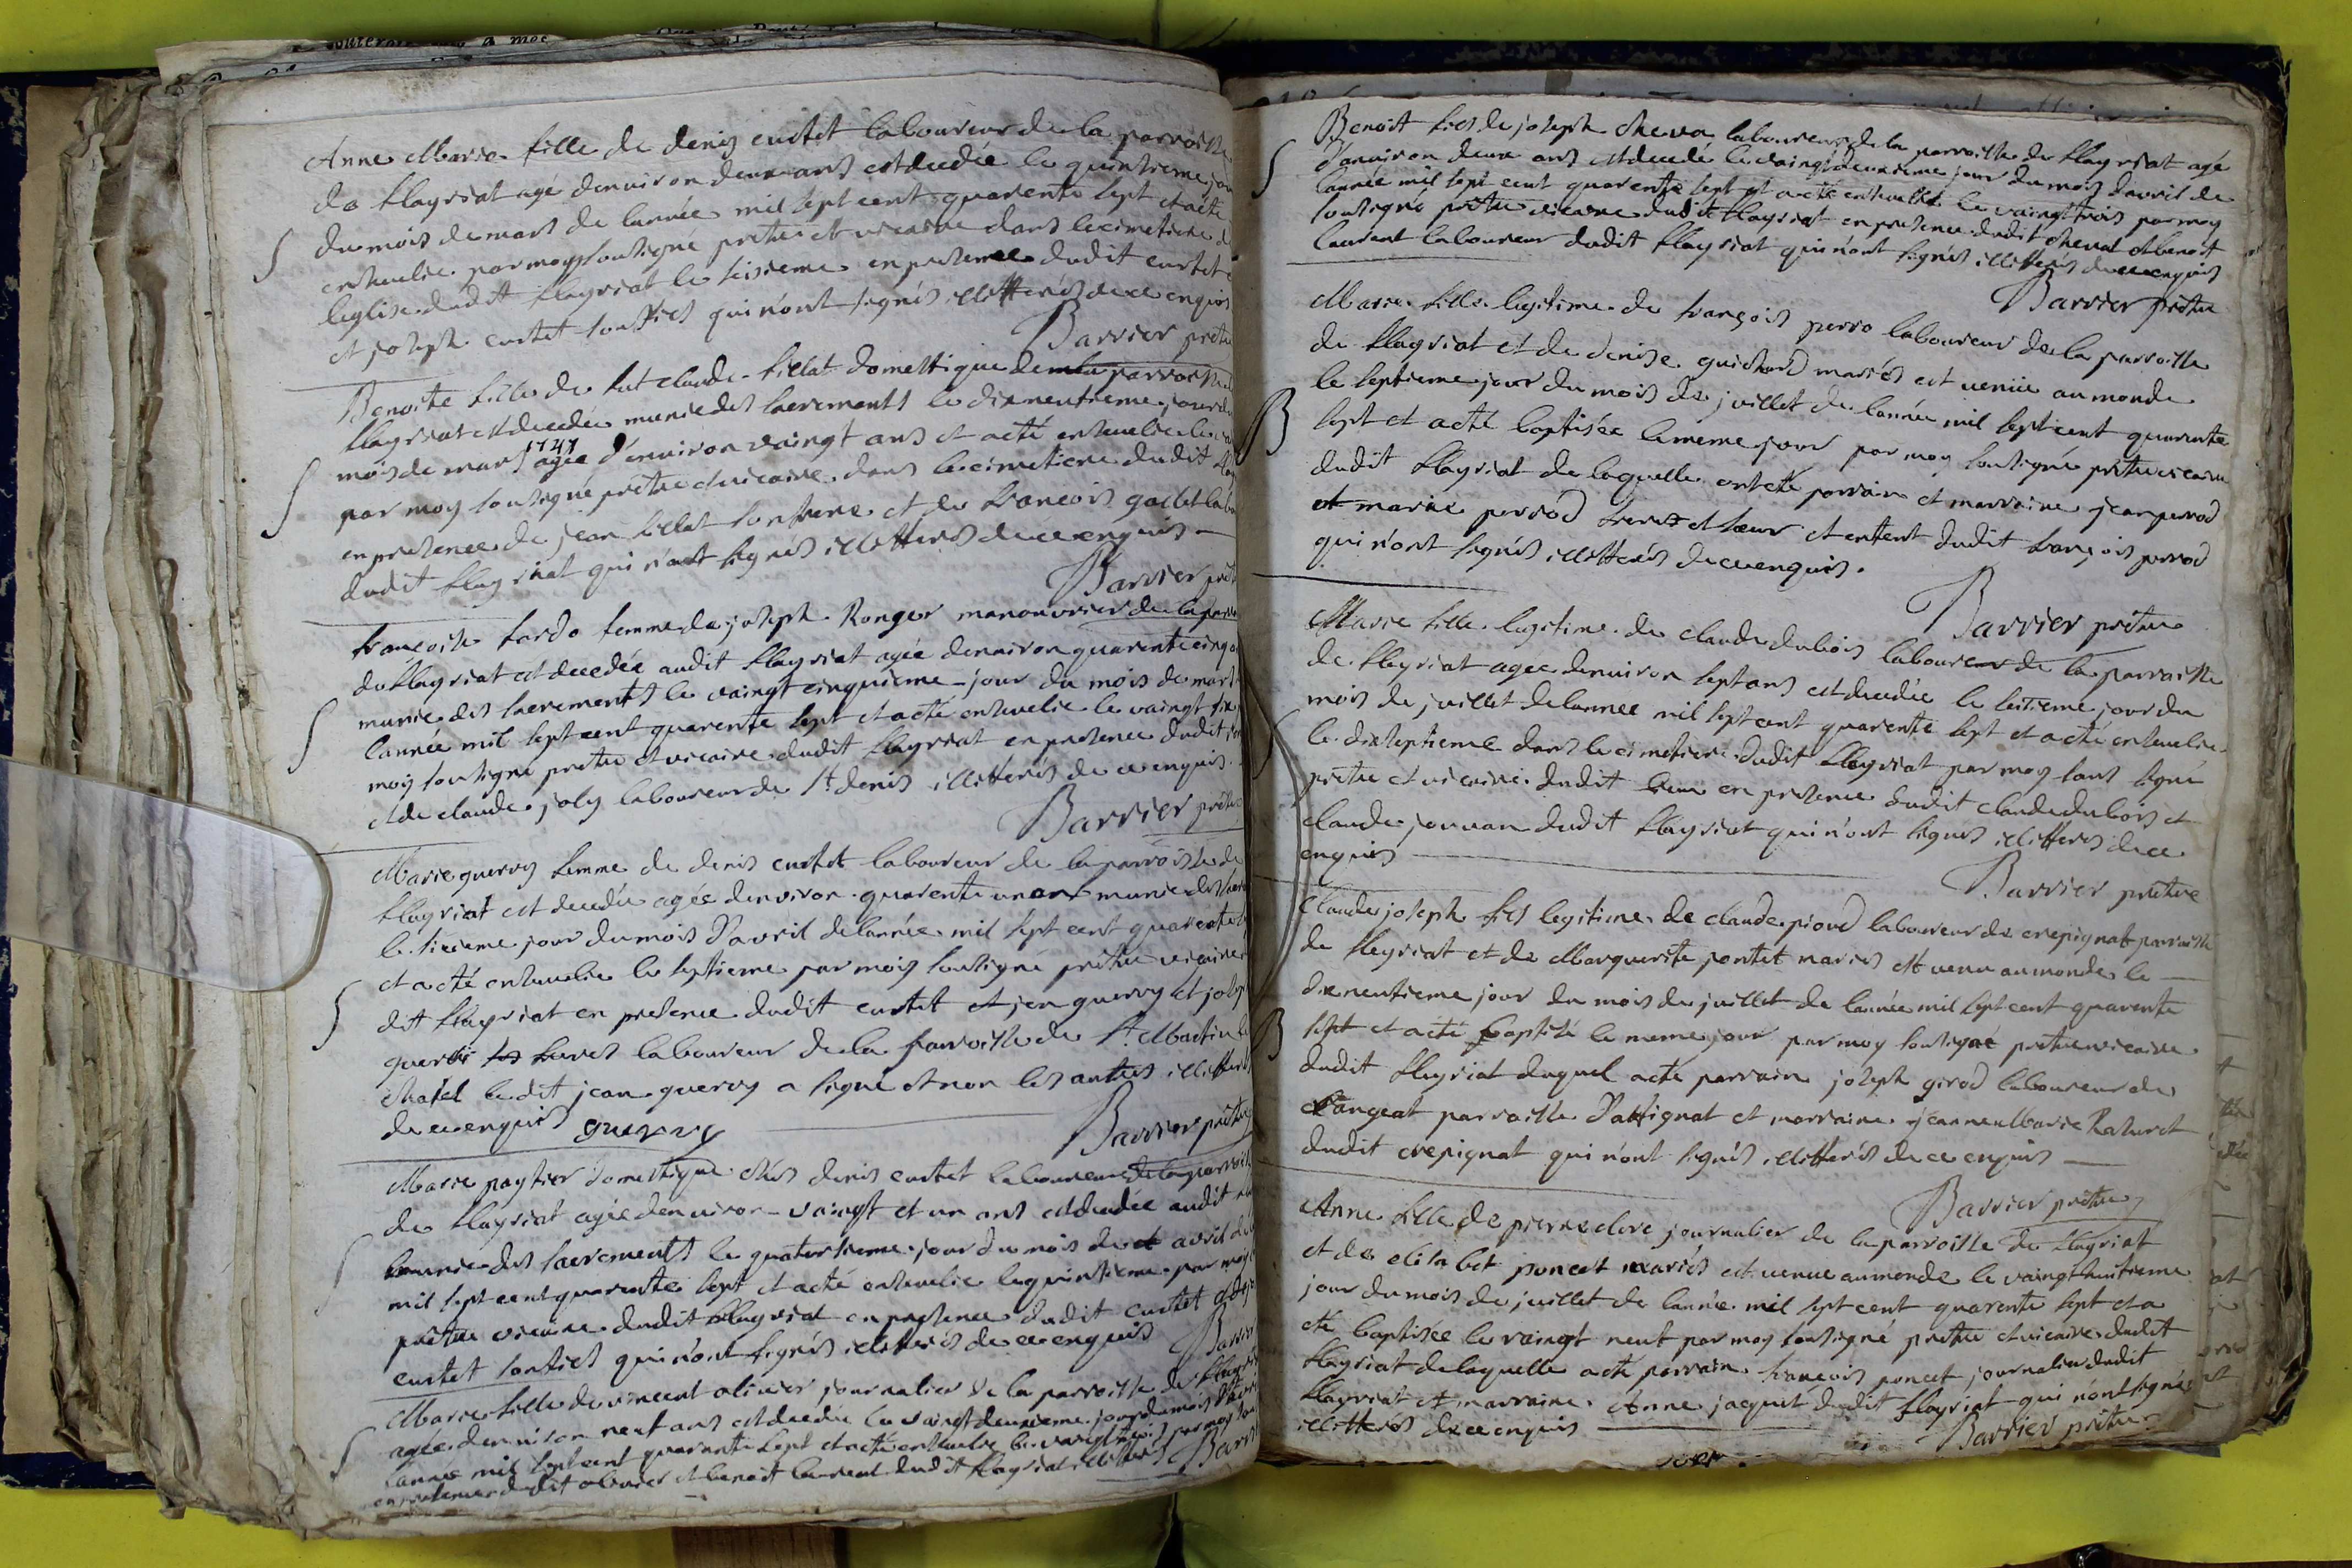 Anne Marie fille de denis curtet laboureur de la parroisse
de fleyriat agé denuiron deux ans est decedée le quinsieme jour
du mois de mars de lannée mil sept cent quarente sept et a eté
enseuelie par moy soussigné pretre et vicaire dans le cimetiere de
leglise dudit fleyriat le seisieme en presence dudit curtet
et joseph curtet son fils qui n'ont signés illitterés de ce enquis
Barrier pretre
Benoite fille de fut claude fillat domestique de la parroisse
fleyriat est decedée munie des sacrements le dixneufieme jour du
mois de mars 1747 agée d'enuiron vaingt ans et a eté enseuelie le
par moy soussigné prêtre et vicaire dans le cimetiere dudit
en presence de jean fillat son frere et de francois gallet
dudit fleyriat qui n'ont signés illitterés de ce enquis
Barrier pretre
françoise tardo femme de joseph Ronger manouvrier de la parr
de fleyriat est decedée audit fleyriat agée denuiron quarente cinq
munie des sacrements le vaingt cinquieme jour du mois de mars
lannée mil sept cent quarente sept et a eté enseuelie le vaingt six
moy soussigné pretre et vicaire dudit fleyriat en presence dudit
et de claude joly laboureur de st denis illitterés de ce enquis
Barrier pretre
Marie guerry femme de denis curtet laboureur de la parroisse de
fleyriat est decedée agée denviron quarente un ans munie des
le sixieme jour du mois d'avril de lannée mil sept cent quarente
et a eté enseuelie le septieme par mois soussigné prêtre vicaire
dit fleyriat en presence dudit curtet et jean guerry et joseph
guerri freres laboureur de la parroisse de st Martin
chatel ledit jean guerry a signé et non les autres illitterés
de ce enquis guerry
Barrier prêtre
Marie paytier domestique chés denis curtet laboureur de la parroisse
de fleyriat agée denuiron vaingt et un ans est decedée audit
munie des sacrements le quatorsieme jour du mois de avril de
mil sept cent quarente sept et a eté enseuelie le quinsieme par moy
prêtre vicaire dudit fleyriat en presence dudit curtet et
curtet son fils qui n'ont signés illiterés de ce enquis
Barrier
Marie fille de vincent oliuier journalier de la parroisse de fleyriat
agée denuiron neuf ans est decedée le vaingt deuxieme jour du mois d'avril
lannée mil sept cent quarante sept et a eté enseuelie le vaingt trois par moy
en presence dudit oliuier et benoit laurent dudit fleyriat illitterés Barrier
Benoit fils de joseph cheval laboureur de la parroisse de fleyriat agé
d'enuiron deux ans est decedé le vaingt deuxieme jour du mois d'avril de
lannée mil sept cent quarente sept et a eté enseuelit le vaingt trois par moy
soussigné prêtre vicaire dudit fleyriat en presence dudit cheval et benoit
laurent laboureur dudit fleyriat qui n'ont signés illitterés de ce enquis
Barrier prêtre
Marie fille legitime de françois perro laboureur de la parroisse
de fleyriat et de denise guichard mariés est venüe au monde
le septieme jour du mois de juillet de lannée mil sept cent quarente
sept et a eté baptisée le meme jour par moy soussigné prêtre vicaire
dudit fleyriat de laquelle ont eté parrain et marraine jean perrod
et marie perrod frere et sœur et enfent dudit françois perrod
qui n'ont signés illitterés de ce enquis.
Barrier prêtre
Marie fille legitime de claude dubois laboureur de la parroisse
de fleyriat agee denuiron sept ans est decedée le seisieme jour du
mois de juillet de lannee mil sept cent quarente sept et a eté enseuelie
le dixseptieme dans le cimetiere dudit fleyriat par moy sous signé
prêtre et vicaire dudit lieu en presence dudit claude dubois et
claude jouvan dudit fleyriat qui n'ont signés illitterés de ce
enquis
Barrier prêtre
Claude joseph fils legitime de claude pioud laboureur de crepignat parroisse
de fleyriat et de Marguerite pontet mariés est venu au monde le
dixneufieme jour du mois de juillet de lannée mil sept cent quarente
sept et a eté baptisé le meme jour par moy soussigné pretre vicaire
dudit fleyriat duquel a eté parrain joseph girod laboureur de
cangeat parroisse d'attignat et marraine jeanne Marie
dudit crepignat qui n'ont signés illitterés de ce enquis
Barrier prêtre
Anne fille de pierre clere journalier de la parroisse de fleyriat
et de elisabet poncet mariés est venue au monde le vaingt huitieme
jour du mois de juillet de lannée mil sept cent quarente sept et a
eté baptisée le vaingt neuf par moy soussigné prêtre et vicaire dudit
fleyriat de laquelle a eté parrain françois poncet journalier dudit
fleyriat et marraine Anne jaquet dudit fleyriat qui n'ont signés
illitterés de ce enquis
Barrier prêtre